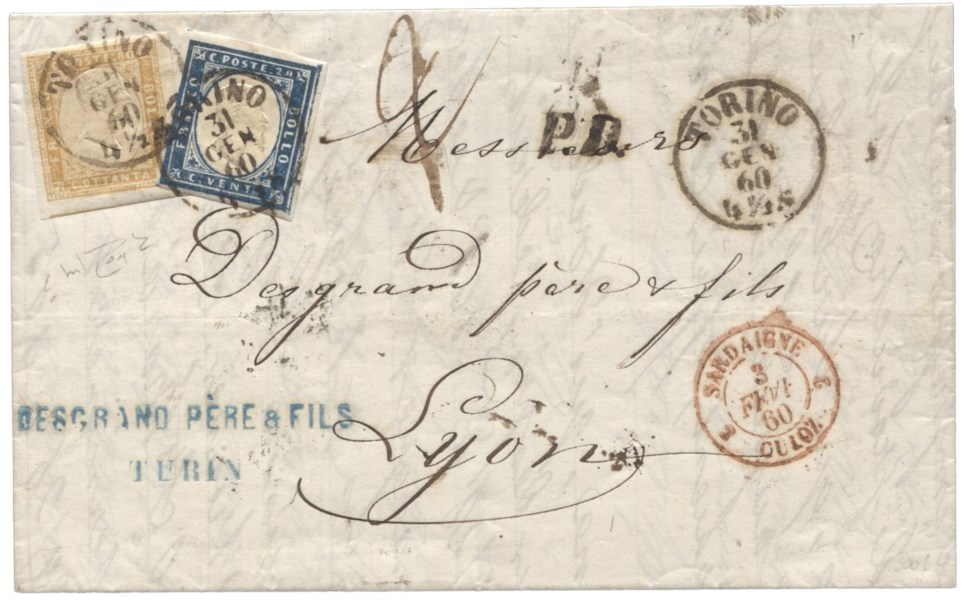 TORINO
GEN
60
C. POSTE. 20
FRANCO
BOLLO
C. VENTI
OTTANTA
TORINO
31
GEN
60
P.D.
TORINO
31
GEN
60
4½ S
Messieurs
Desgrand père & fils
Lyon
SARDAIGNE
3
FEVR
60
2 CULOZ 2
DESGRAND PÈRE & FILS
TURIN